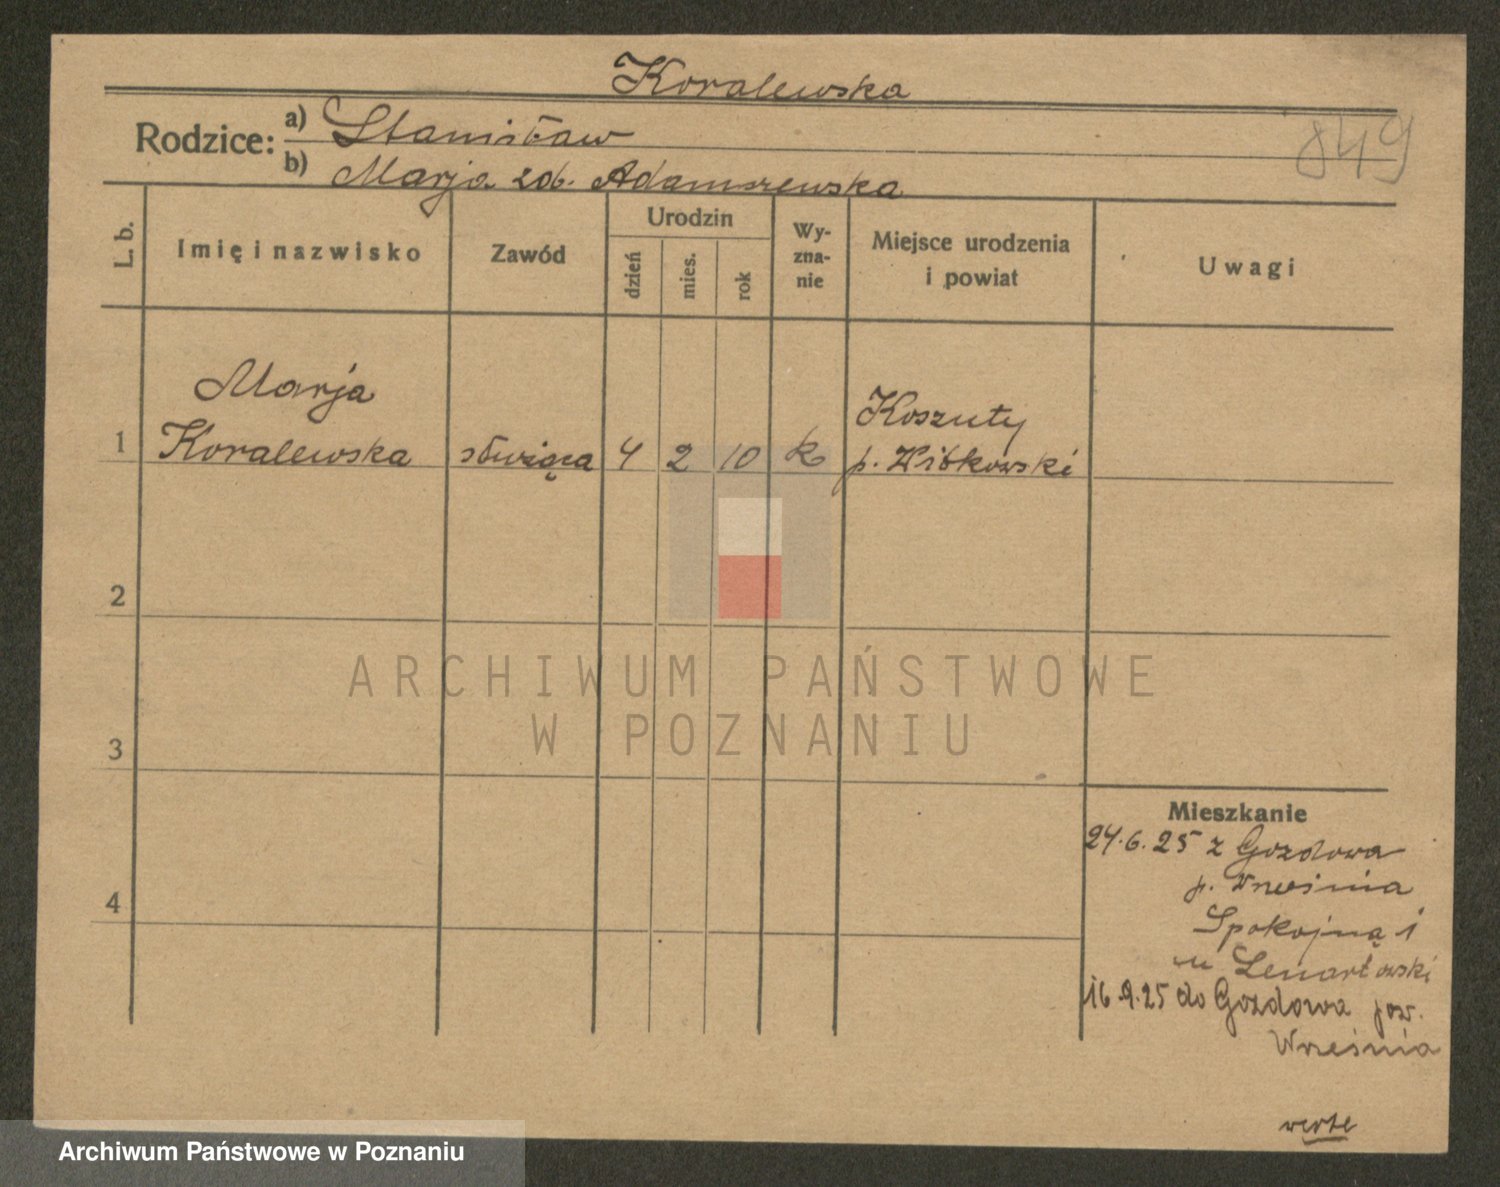 Koralewska
Rodzice: a) Stanisław
b) Marja zob. Adamszewska
849
L. b.
Imię i nazwisko
Zawód
Urodzin
dzień
mies.
rok
Wy-
zna-
nie
Miejsce urodzenia
i powiat
Uwagi
Marja
Koszuty
1 Koralewska służąca 4 2 10 k p. Witkowski
2
3
4
Mieszkanie
24.6.25 z Gozdowa
p. Września
Spokojną 1
u Lenartowski
16.9.25 do Gozdowa pow.
Września
verte
ARCHIWUM PAŃSTWOWE
W POZNANIU
Archiwum Państwowe w Poznaniu